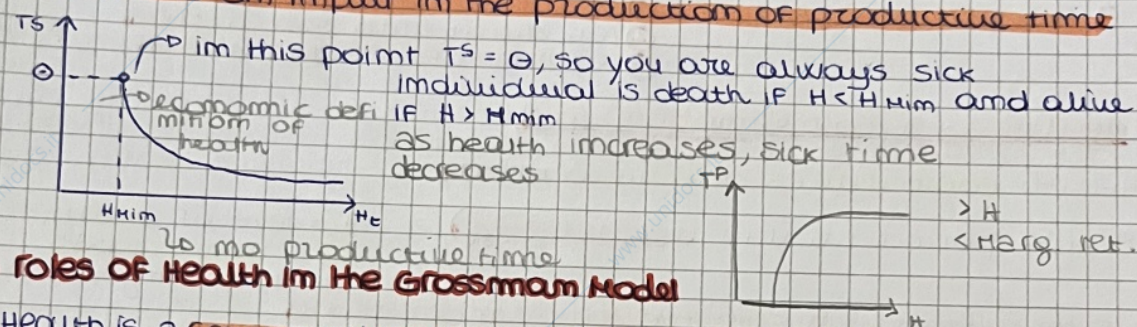 in the production of productive time
TS
in this point TS = Θ, so you are always sick
Θ
individual is death if H < Hmin and alive
if H > Hmin
economic defi
nition of
health
as health increases, sick time
decreases
Hmin
Ht
no productive time
TP
> H
< Marg ret.
H
roles of Health in the Grossman Model
Health is a